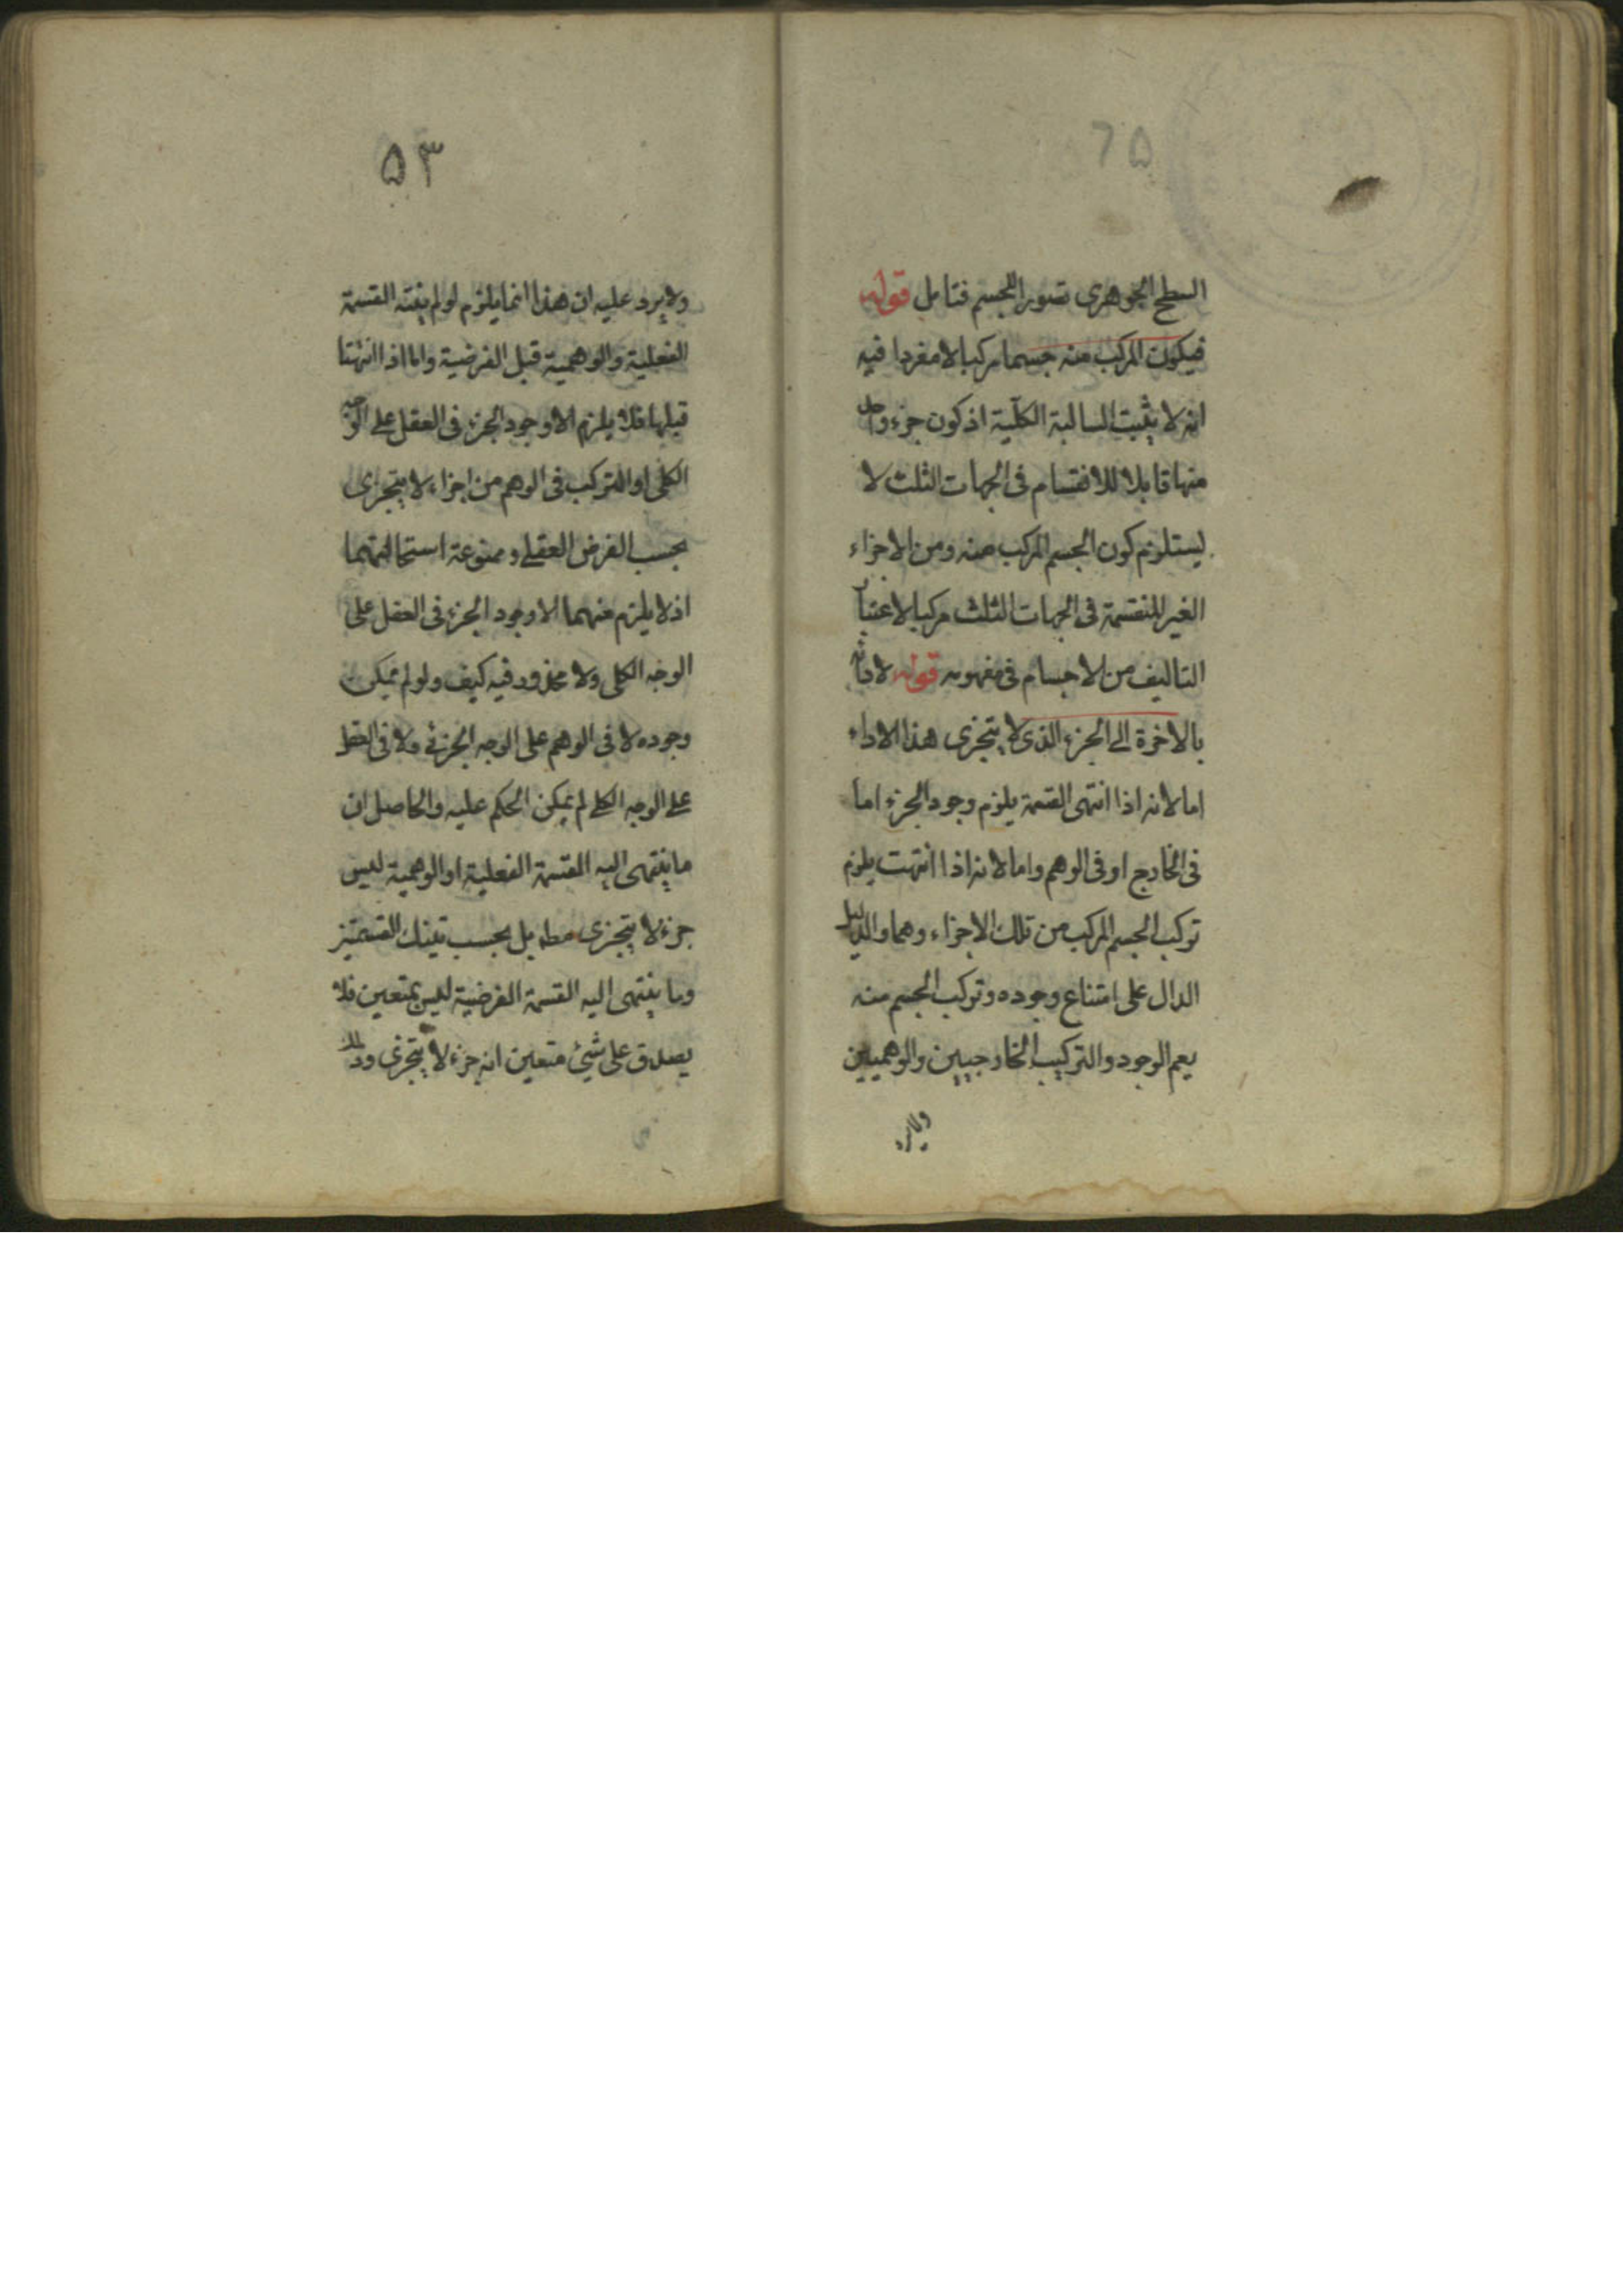 ٦٥
السطح الجوهرى تصور الجسم فتامل قوله
فيكون المركب منه جسما مركبا لا مفردا فيه
انه لا يثبت السالبة الكلية اذ كون جزء واحد
منها قابلا للانقسام فى الجهات الثلث لا
يستلزم كون الجسم المركب منه ومن الاجزاء
الغير المنقسمة فى الجهات الثلث مركبا لاعتبار
التاليف من الاجسام فى مفهومه قوله لادائه
بالاخرة الى الجزء الذى لا يتجزى هذا الاداء
اما لانه اذا انتهى القسمة يلزم وجود الجزء اما
فى الخارج او فى الوهم واما لانه اذا انتهت يلزم
تركب الجسم المركب من تلك الاجزاء وهما والدليل
الدال على امتناع وجوده وتركب الجسم منه
يعم الوجود والتركيب الخارجيين والوهميين
ولا يرد
٥٣
ولا يرد عليه ان هذا انما يلزم لو لم ينته القسمة
الفعلية والوهمية قبل الفرضية واما اذا انتهتا
قبلها فلا يلزم الا وجود الجزء فى العقل على الوجه
الكلى او التركب فى الوهم من اجزاء لا يتجزى
بحسب الفرض العقلى وممنوعة استحالتهما
اذ لا يلزم منهما الا وجود الجزء فى العقل على
الوجه الكلى ولا محذور فيه كيف ولو لم يمكن
وجوده لا فى الوهم على الوجه الجزئى ولا فى العقل
على الوجه الكلى لم يمكن الحكم عليه والحاصل ان
ما ينتهى اليه القسمة الفعلية او الوهمية ليس
جزء لا يتجزى مطه بل بحسب تينك القسمتين
وما ينتهى اليه القسمة الفرضية ليس بمتعين فلا
يصدق على شئ متعين انه جزء لا يتجزى